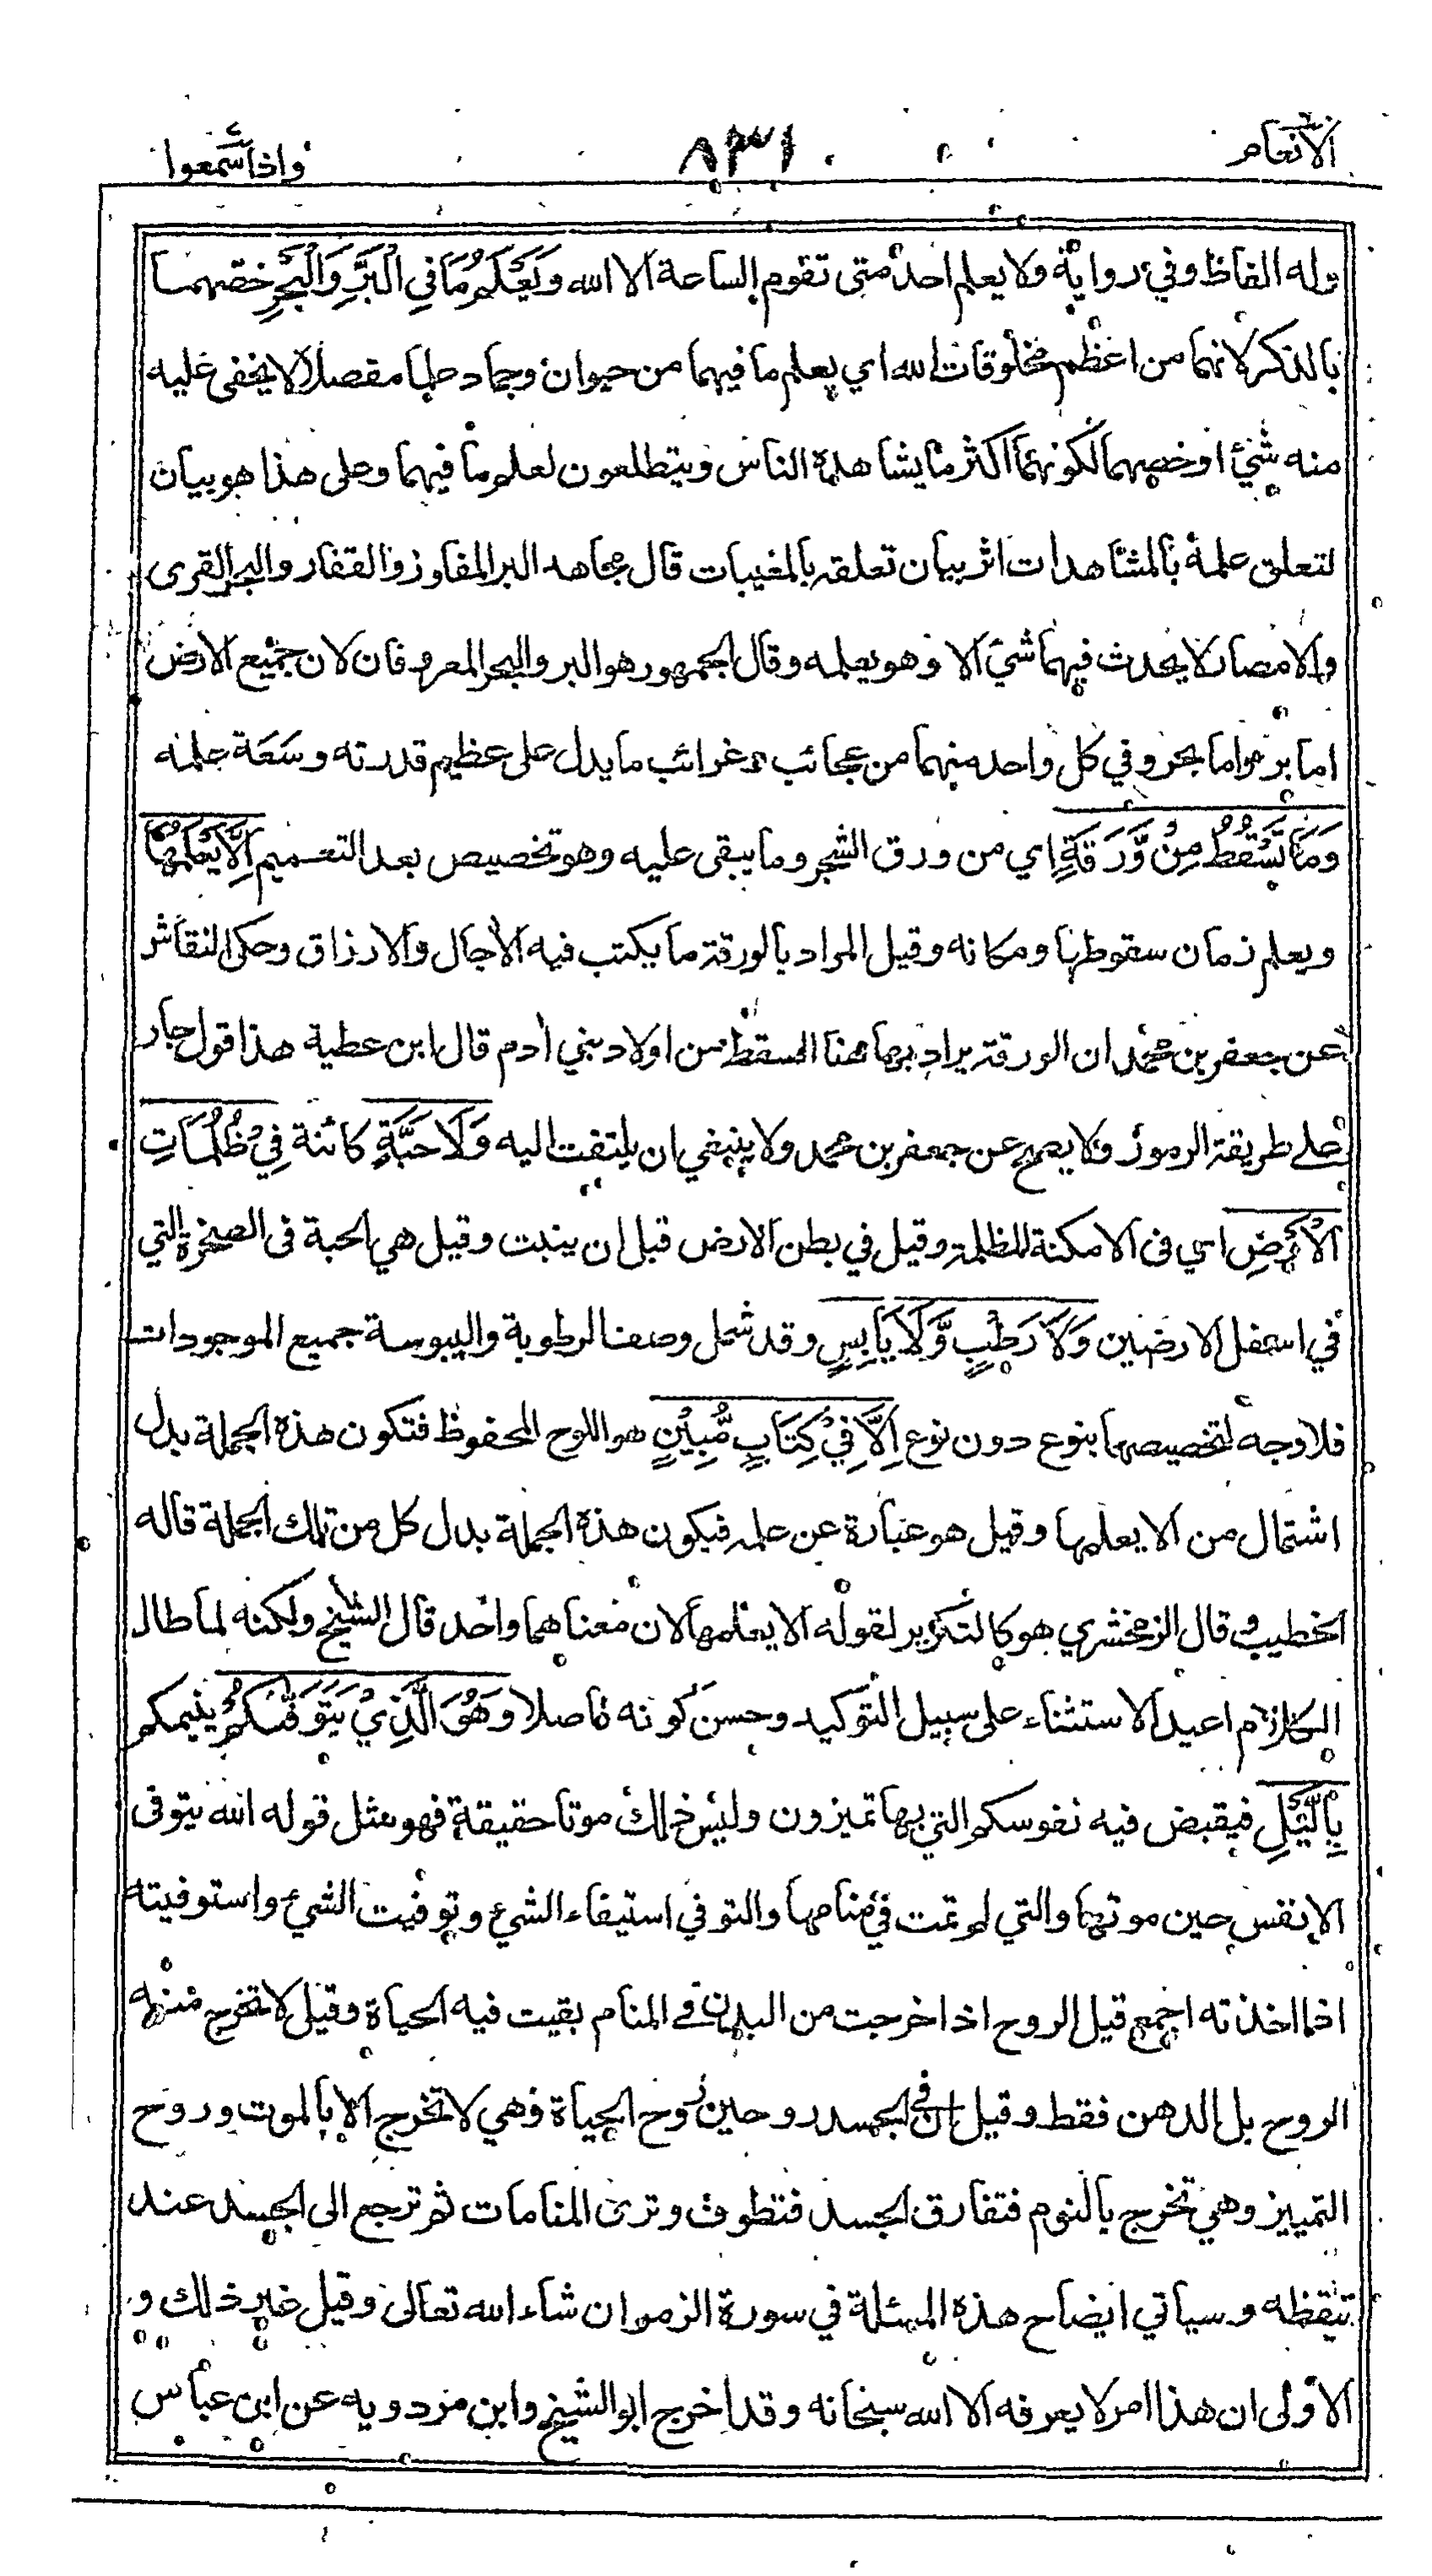 الانعام
٨٣١
واذاسمعوا
وله الفاظ وفي رواية ولا يعلم احد متى تقوم الساعة الا الله وَيَعْلَمُ مَا فِي الْبَرِّ وَالْبَحْرِ خصهما
بالذكر لانهما من اعظم مخلوقات الله اي يعلم ما فيهما من حيوان وجماد علما مفصلا لا يخفى عليه
منه شيئ او خصهما لكونهما اكثر ما يشاهده الناس ويتطلعون لعلم ما فيهما وعلى هذا هو بيان
لتعلق علمه بالمشاهدات اثر بيان تعلقه بالمغيبات قال مجاهد البر المفاوز والقفار والبحر القرى
والامصار لا يحدث فيهما شيئ الا وهو يعلمه وقال الجمهور هو البر والبحر المعروفان لان جميع الارض
اما بر واما بحر وفي كل واحد منهما من عجائب وغرائب ما يدل على عظيم قدرته وسَعَة علمه
وَمَا تَسْقُطُ مِنْ وَّرَقَةٍ اي من ورق الشجر وما يبقى عليه وهو تخصيص بعد التعميم اِلَّا يَعْلَمُهَا
ويعلم زمان سقوطها ومكانه وقيل المراد بالورقة ما يكتب فيه الآجال والارزاق وحكى النقاش
عن جعفر بن محمد ان الورقة يراد بها هنا السقط من اولاد بني آدم قال ابن عطية هذا قول جار
على طريقة الرموز ولا يصح عن جعفر بن محمد ولا ينبغي ان يلتفت اليه وَلَا حَبَّةٍ كائنة فِيْ ظُلُمَاتِ
الْاَرْضِ اي في الامكنة المظلمة وقيل في بطن الارض قبل ان ينبت وقيل هي الحبة في الصخرة التي
في اسفل الارضين وَلَا رَطْبٍ وَّلَا يَابِسٍ وقد شمل وصفا الرطوبة واليبوسة جميع الموجودات
فلا وجه لتخصيصها بنوع دون نوع اِلَّا فِيْ كِتَابٍ مُّبِيْنٍ هو اللوح المحفوظ فتكون هذه الجملة بدل
اشتمال من الا يعلمها وقيل هو عبارة عن علمه فيكون هذه الجملة بدل كل من تلك الجملة قاله
الخطيب وقال الزمخشري هو كالتكرير لقوله الا يعلمها لان معناهما واحد قال الشيخ ولكنه لما طال
الكلام اعيد الاستثناء على سبيل التوكيد وحسن كونه فاصلا وَهُوَ الَّذِيْ يَتَوَفّٰىكُمْ ينيمكم
بِالَّيْلِ فيقبض فيه نفوسكم التي بها تميزون وليس ذلك موتا حقيقة فهو مثل قوله الله يتوفى
الانفس حين موتها والتي لم تمت في منامها والتوفي استيفاء الشيئ وتوفيت الشيئ واستوفيته
اذا اخذته اجمع قيل الروح اذا خرجت من البدن في المنام بقيت فيه الحياة وقيل لا تخرج منه
الروح بل الدهن فقط وقيل ان في الجسد روحين روح الحياة وهي لا تخرج الا بالموت وروح
التمييز وهي تخرج بالنوم فتفارق الجسد فتطوف وترى المنامات ثم ترجع الى الجسد عند
تيقظه وسياتي ايضاح هذه المسئلة في سورة الزمر ان شاء الله تعالى وقيل غير ذلك و
الاولى ان هذا امر لا يعرفه الا الله سبحانه وقد اخرج ابو الشيخ وابن مردويه عن ابن عباس